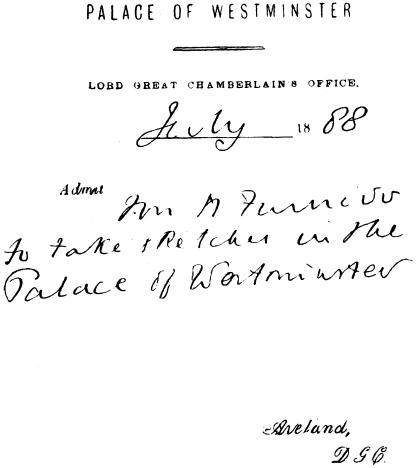 PALACE OF WESTMINSTER
LORD GREAT CHAMBERLAIN'S OFFICE.
July 18 88
Admit Mr H Furniss
to take sketches in the
Palace of Westminster
Aveland,
D G C.